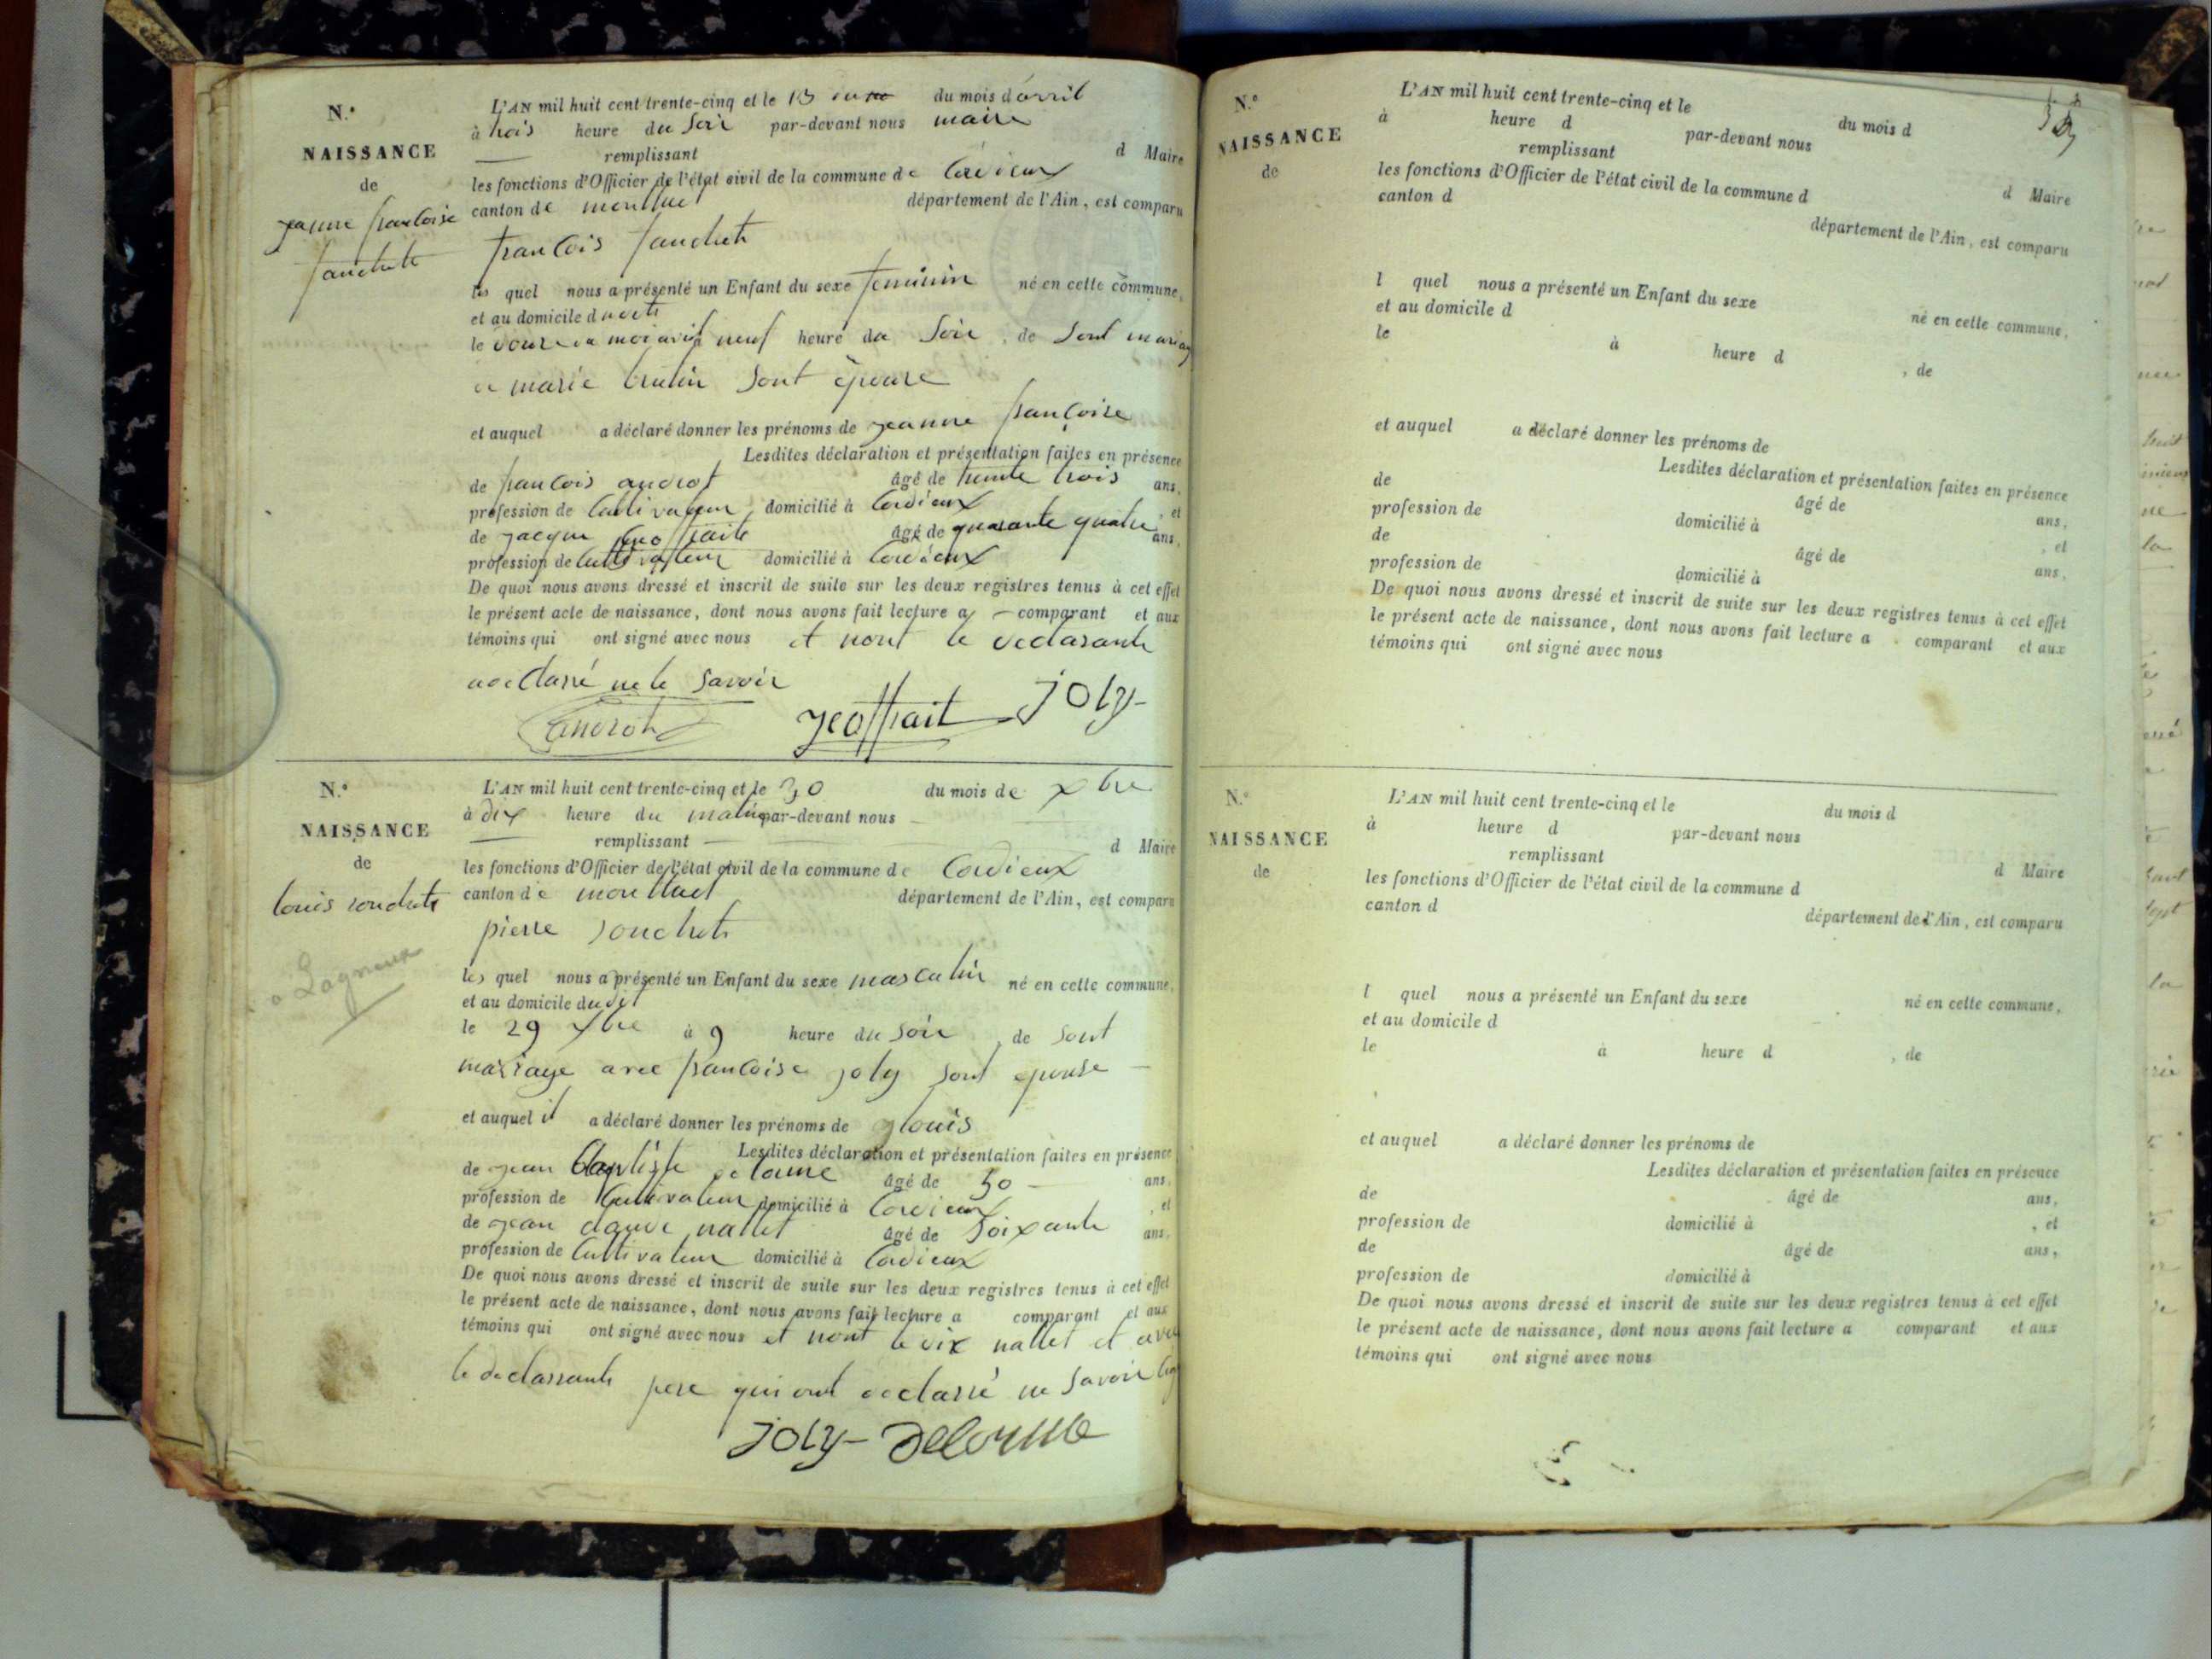 N.°
NAISSANCE
de
jeanne francoise
fanchete
L'AN mil huit cent trente-cinq et le 13 du mois d avril
à trois heure du soir par-devant nous maire
remplissant d Maire
les fonctions d'Officier de l'état civil de la commune de Cordieux
canton de montluel département de l'Ain, est comparu
francois fanchete
les quel nous a présenté un Enfant du sexe feminin né en cette commune,
et au domicile du
le douze du moi avril neuf heure du soir, de sont mariag
a marie sont épouse
et auquel a déclaré donner les prénoms de jeanne françoise
Lesdites déclaration et présentation faites en présence
de francois androt âgé de trente trois ans,
profession de Cultivateur domicilié à Cordieux, et
de jacque âgé de quarante quatre ans,
profession de Cultivateur domicilié à Cordieux
De quoi nous avons dressé et inscrit de suite sur les deux registres tenus à cet effet
le présent acte de naissance, dont nous avons fait lecture a comparant et aux
témoins qui ont signé avec nous et nont le declarante
a declarré ne le savoir
androt jeoffrait joly
N.°
NAISSANCE
de
louis
a Lagneux
L'AN mil huit cent trente-cinq et le 30 du mois de xbre
à dix heure du matin par-devant nous
remplissant d Maire
les fonctions d'Officier de l'état civil de la commune de Cordieux
canton de montluel département de l'Ain, est comparu
pierre
les quel nous a présenté un Enfant du sexe masculin né en cette commune,
et au domicile dudit
le 29 xbre à 9 heure du soir, de sont
mariage avec francoise joly sont epouse
et auquel il a déclaré donner les prénoms de louis
Lesdites déclaration et présentation faites en présence
de jean Baptiste âgé de 50 ans,
profession de Cultivateur domicilié à Cordieux, et
de jean claude nallet âgé de soixante ans,
profession de Cultivateur domicilié à Cordieux
De quoi nous avons dressé et inscrit de suite sur les deux registres tenus à cet effet
le présent acte de naissance, dont nous avons fait lecture a comparant et aux
témoins qui ont signé avec nous et nont le dix nallet et
le declarrante pere qui ont declarré ne savoir
joly - Delorme
N.°
NAISSANCE
de
L'AN mil huit cent trente-cinq et le du mois d
à heure d par-devant nous
remplissant d Maire
les fonctions d'Officier de l'état civil de la commune d
canton d département de l'Ain, est comparu
l quel nous a présenté un Enfant du sexe né en cette commune,
et au domicile d
le à heure d , de
et auquel a déclaré donner les prénoms de
Lesdites déclaration et présentation faites en présence
de âgé de ans,
profession de domicilié à , et
de âgé de ans,
profession de domicilié à
De quoi nous avons dressé et inscrit de suite sur les deux registres tenus à cet effet
le présent acte de naissance, dont nous avons fait lecture a comparant et aux
témoins qui ont signé avec nous
N.°
NAISSANCE
de
L'AN mil huit cent trente-cinq et le du mois d
à heure d par-devant nous
remplissant d Maire
les fonctions d'Officier de l'état civil de la commune d
canton d département de l'Ain, est comparu
l quel nous a présenté un Enfant du sexe né en cette commune,
et au domicile d
le à heure d , de
et auquel a déclaré donner les prénoms de
Lesdites déclaration et présentation faites en présence
de âgé de ans,
profession de domicilié à , et
de âgé de ans,
profession de domicilié à
De quoi nous avons dressé et inscrit de suite sur les deux registres tenus à cet effet
le présent acte de naissance, dont nous avons fait lecture a comparant et aux
témoins qui ont signé avec nous